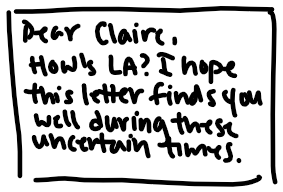 Dear Claire,
How's LA? I hope
this letter finds you
well during these
uncertain times.